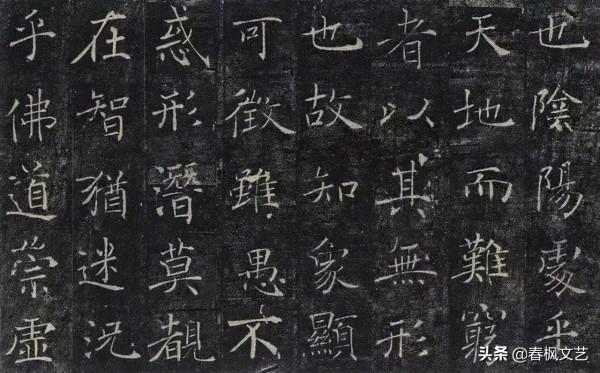 也陰陽處乎
天地而難窮
者以其無形
也故知象顯
可徵雖愚不
惑形潛莫覩
在智猶迷況
乎佛道崇虛
头条 @春枫文艺